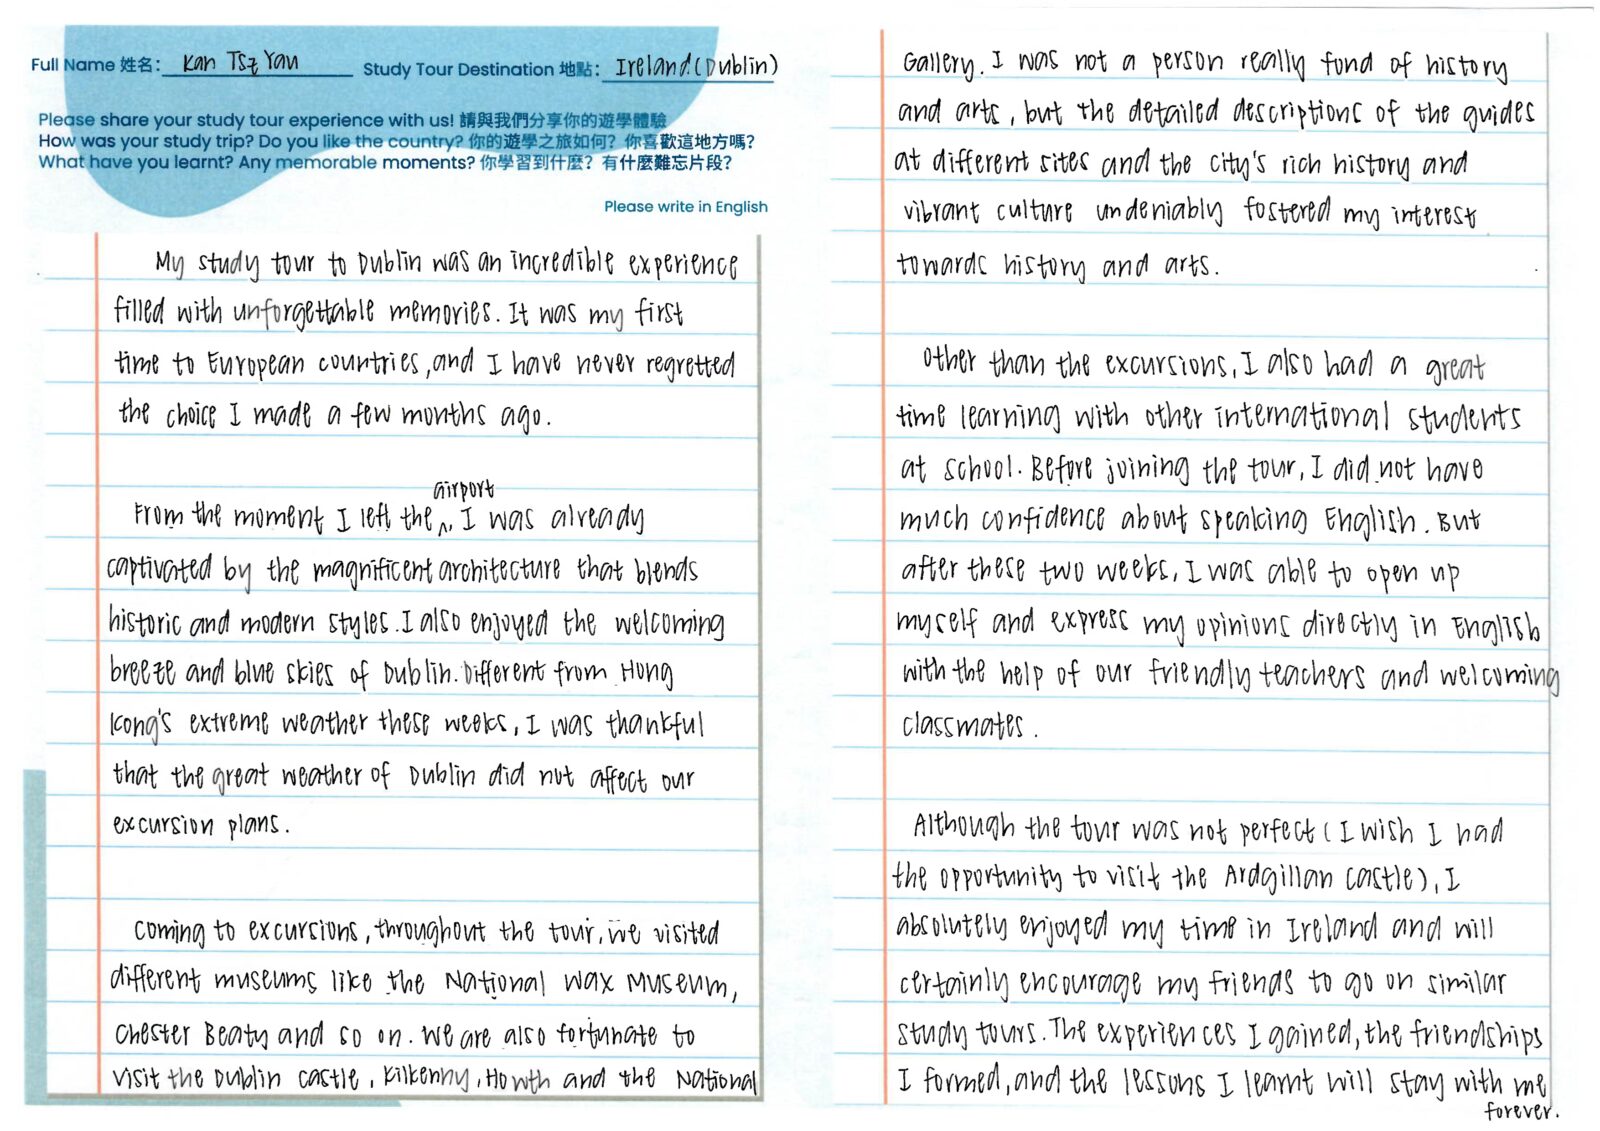 Full Name 姓名: Kan Tsz Yau Study Tour Destination 地點: Ireland (Dublin)
Please share your study tour experience with us! 請與我們分享你的遊學體驗
How was your study trip? Do you like the country? 你的遊學之旅如何? 你喜歡這地方嗎?
What have you learnt? Any memorable moments? 你學習到什麼? 有什麼難忘片段?
Please write in English
My study tour to Dublin was an incredible experience
filled with unforgettable memories. It was my first
time to European countries, and I have never regretted
the choice I made a few months ago.
From the moment I left the airport, I was already
captivated by the magnificent architecture that blends
historic and modern styles. I also enjoyed the welcoming
breeze and blue skies of Dublin. Different from Hong
Kong's extreme weather these weeks, I was thankful
that the great weather of Dublin did not affect our
excursion plans.
Coming to excursions, throughout the tour, we visited
different museums like the National Wax Museum,
Chester Beaty and so on. We are also fortunate to
visit the Dublin Castle, Kilkenny, Howth and the National
Gallery. I was not a person really fond of history
and arts, but the detailed descriptions of the guides
at different sites and the city's rich history and
vibrant culture undeniably fostered my interest
towards history and arts.
Other than the excursions, I also had a great
time learning with other international students
at school. Before joining the tour, I did not have
much confidence about speaking English. But
after these two weeks, I was able to open up
myself and express my opinions directly in English
with the help of our friendly teachers and welcoming
classmates.
Although the tour was not perfect (I wish I had
the opportunity to visit the Ardgillan Castle), I
absolutely enjoyed my time in Ireland and will
certainly encourage my friends to go on similar
study tours. The experiences I gained, the friendships
I formed, and the lessons I learnt will stay with me
forever.